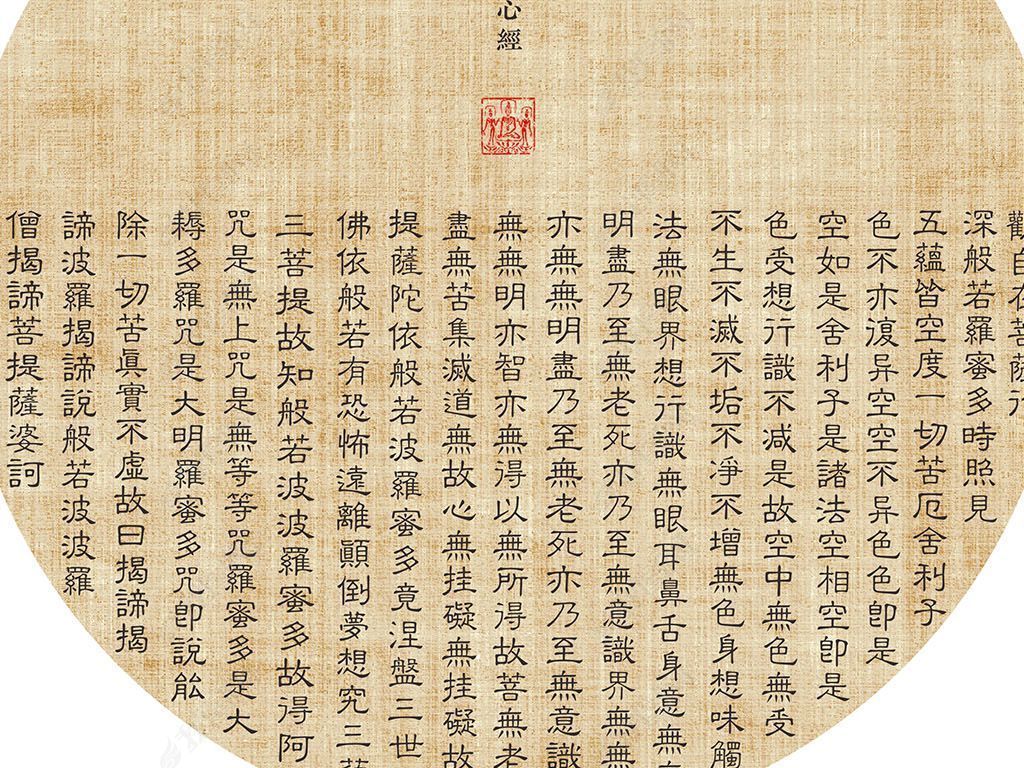 心經
觀自在菩薩行
深般若羅蜜多時照見
五蘊皆空度一切苦厄舍利子
色不亦復异空空不异色色即是
空如是舍利子是諸法空相空即是
色受想行識不減是故空中無色無受
不生不滅不垢不淨不增無色身想味觸
法無眼界想行識無眼耳鼻舌身意無無
明盡乃至無老死亦乃至無意識界無無
亦無無明盡乃至無老死亦乃至無意識
無無明亦智亦無得以無所得故菩無老
盡無苦集滅道無故心無挂礙無挂礙故
提薩陀依般若波羅蜜多竟涅盤三世
佛依般若有恐怖遠離顛倒夢想究三菩
三菩提故知般若波波羅蜜多故得阿
咒是無上咒是無等等咒羅蜜多是大
耨多羅咒是大明羅蜜多咒即說能
除一切苦眞實不虛故曰揭諦揭
諦波羅揭諦說般若波波羅
僧揭諦菩提薩婆訶